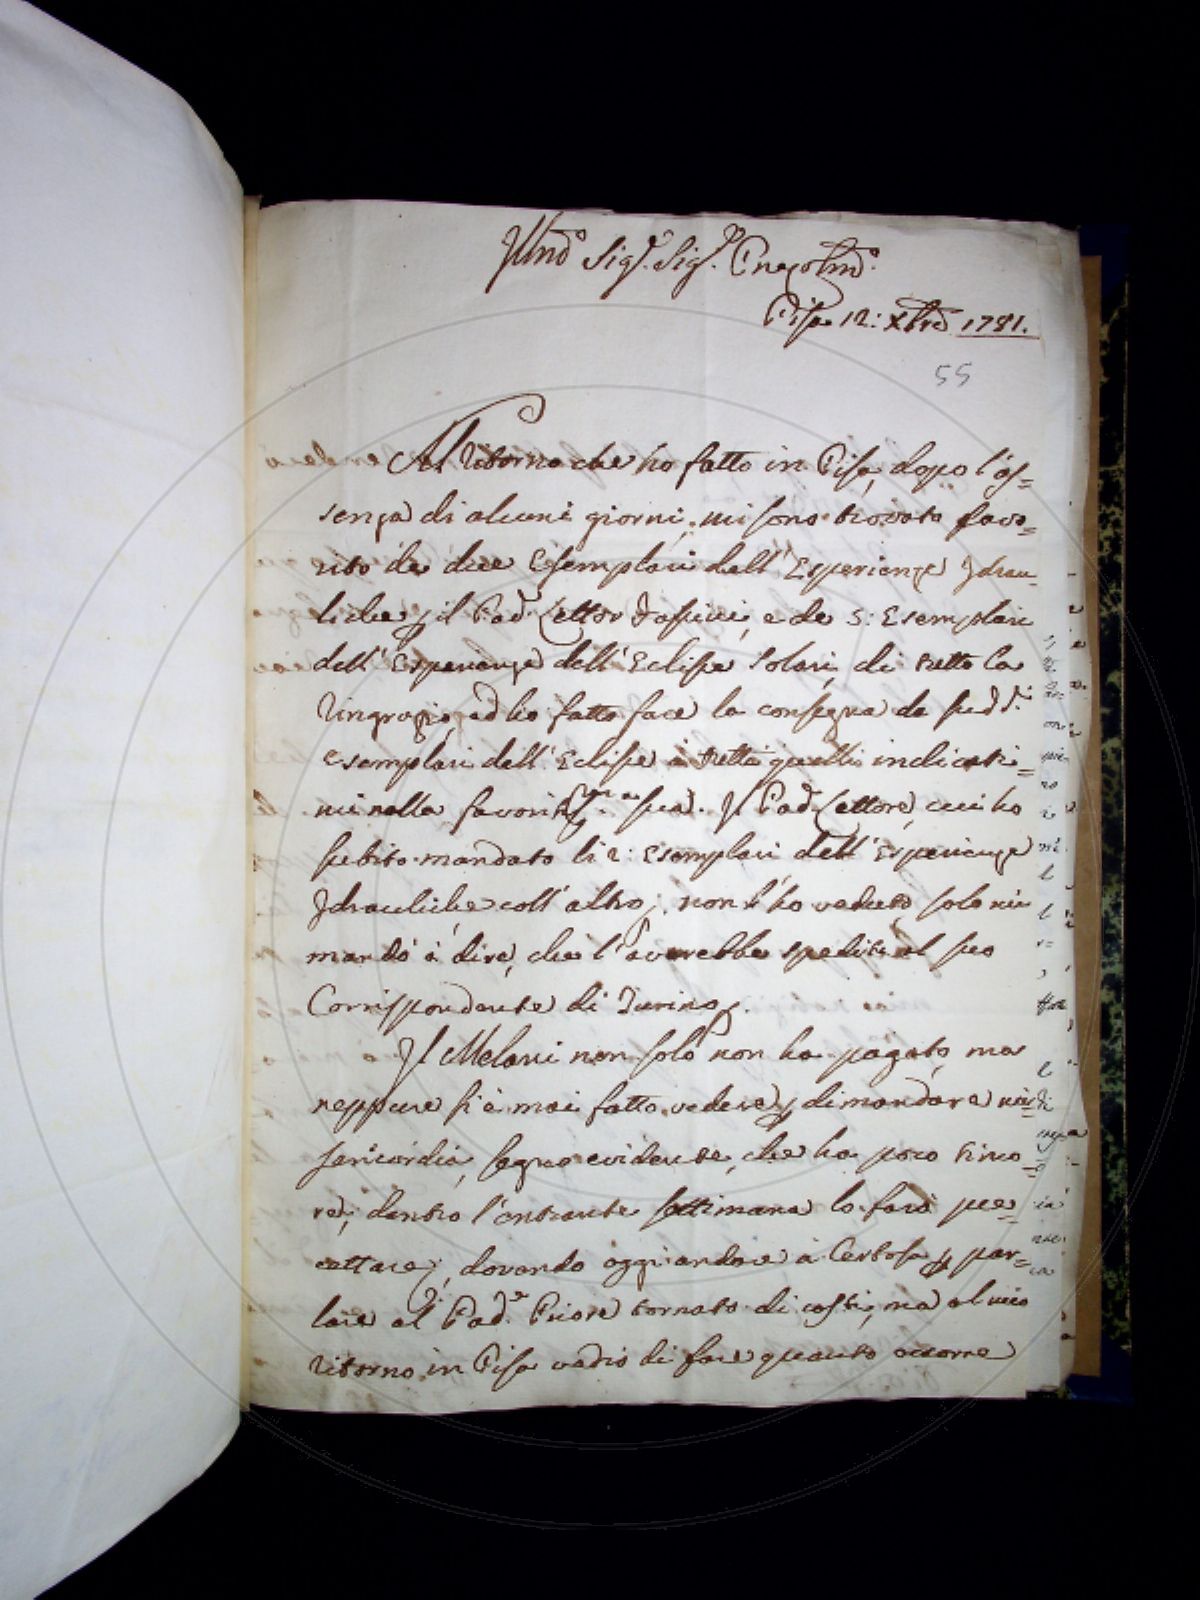 Illmo Sigr. Sigr. Pne Colmo.
Pisa 12: Xbre 1781.
55
Al ritorno che ho fatto in Pisa, dopo l'as=
senza di alcuni giorni, mi sono trovato favo=
rito de due Esemplari dell'Esperienze Idrau=
liche il Pad. Lettor e de 5: Esemplari
dell'Esperienze dell'Eclisse Solari, di tutto la
ringrazio, ed ho fatto fare la consegna de sudd.i
esemplari dell'Eclisse a tutti quelli indicati=
mi nella favoritissma sua. Il Pad. Lettore, cui ho
subito mandato li 2: Esemplari dell'Esperienze
Idrauliche coll'altro, non l'ho veduto, solo mi
mandò à dire, che l'averebbe spedito al suo
Corrispondente di Turino.
Il Melani non solo non ha pagato, ma
neppure si è mai fatto vedere dimandare mi=
sericordia, segno evidente, che ha poco timo=
re; dentro l'entrante settimana lo farò
dovendo oggi andare à Certosa par=
lare al Pad.e Priore tornato di costì, ma al mio
ritorno in Pisa vedrò di fare quanto occorre